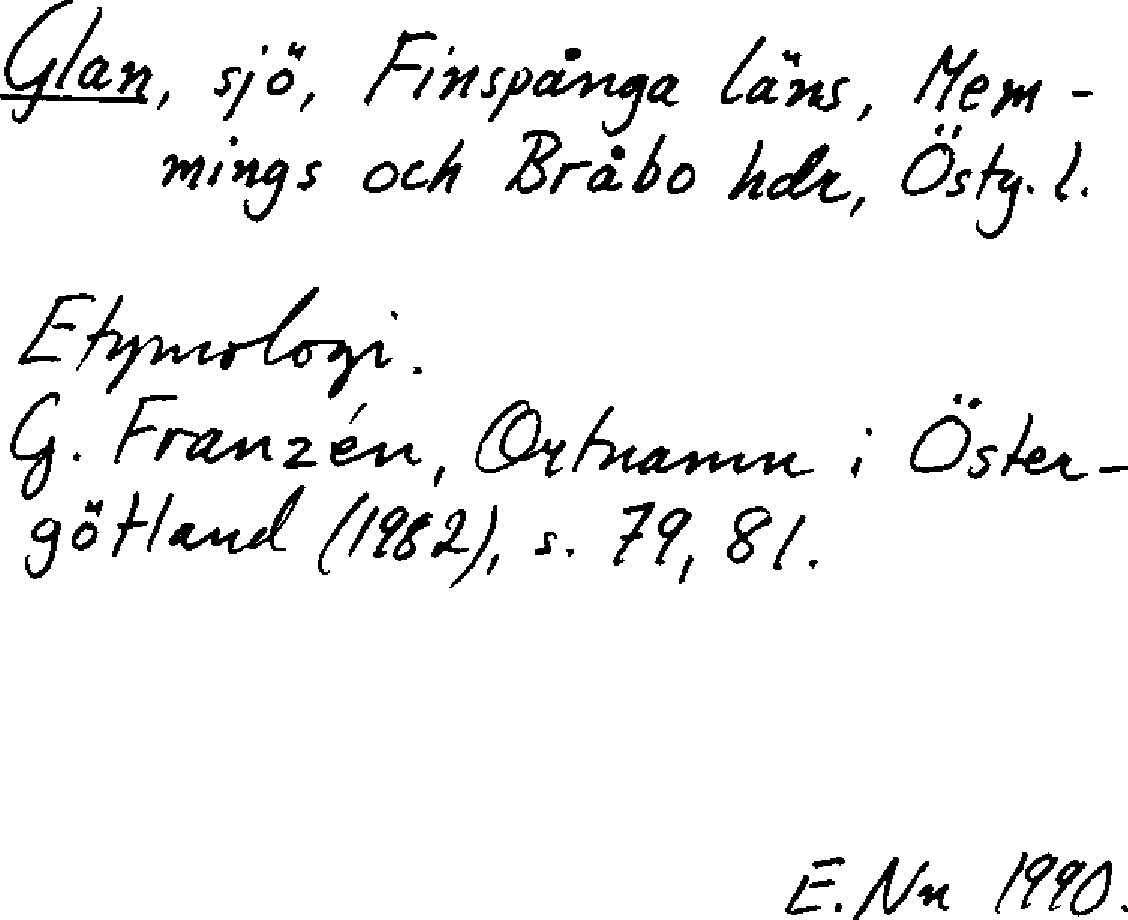 Glan, sjö, Finspånga läns, Mem-
mings och Bråbo hdr, Östg. l.
Etymologi.
G. Franzén, Ortnamn i Öster-
götland (1982), s. 79, 81.
E. Nn 1990.